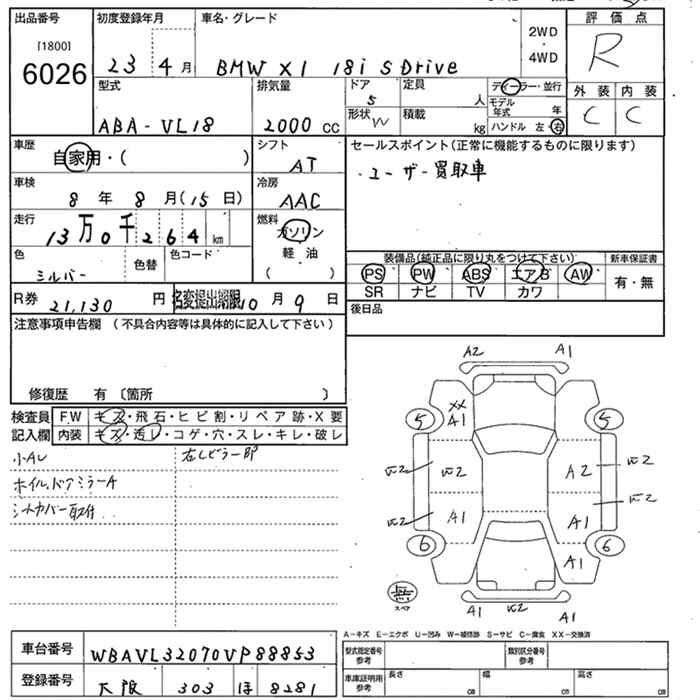 出品番号 初度登録年月 車名・グレード 2WD 評価点
[1800] 4WD
6026 23 4月 BMW X1 18i SDrive R
型式 排気量 ドア 定員 ディーラー・並行 外装 内装
5 人 モデル年式 年 C C
ABA-VL18 2000 CC 形状 W 積載 kg ハンドル 左・右
車歴 シフト セールスポイント(正常に機能するものに限ります)
自家用・( ) AT ・ユーザー買取車
車検 冷房
8 年 8 月(15 日) AAC
走行 燃料
13万0千264km ガソリン
色 色替 色コード 軽油 装備品(純正品に限り丸をつけて下さい) 新車保証書
シルバー ( ) PS PW ABS エアB AW 有・無
SR ナビ TV カワ
R券 21,130 円 名変提出期限 10 月 9 日 後日品
注意事項申告欄 (不具合内容等は具体的に記入して下さい)
修復歴 有 〔箇所 〕
検査員 FW キズ・飛石・ヒビ割・リペア跡・X要
記入欄 内装 キズ・汚レ・コゲ・穴・スレ・キレ・破レ
小AU
ホイル、ドアミラーA
シートカバー取付
A2 A1
XX
A1
5 5
A2
A1 A1
6 6
A1
無
スペア
A1 A1
A-キズ E-エクボ U-凹み W-補修跡 S-サビ C-腐食 XX-交換済
車台番号 WBAVL32070VP88853 型式指定番号 参考 類別区分番号 参考
登録番号 大阪 303 ほ 8281 車庫証明用 参考 長さ cm 幅 cm 高さ cm